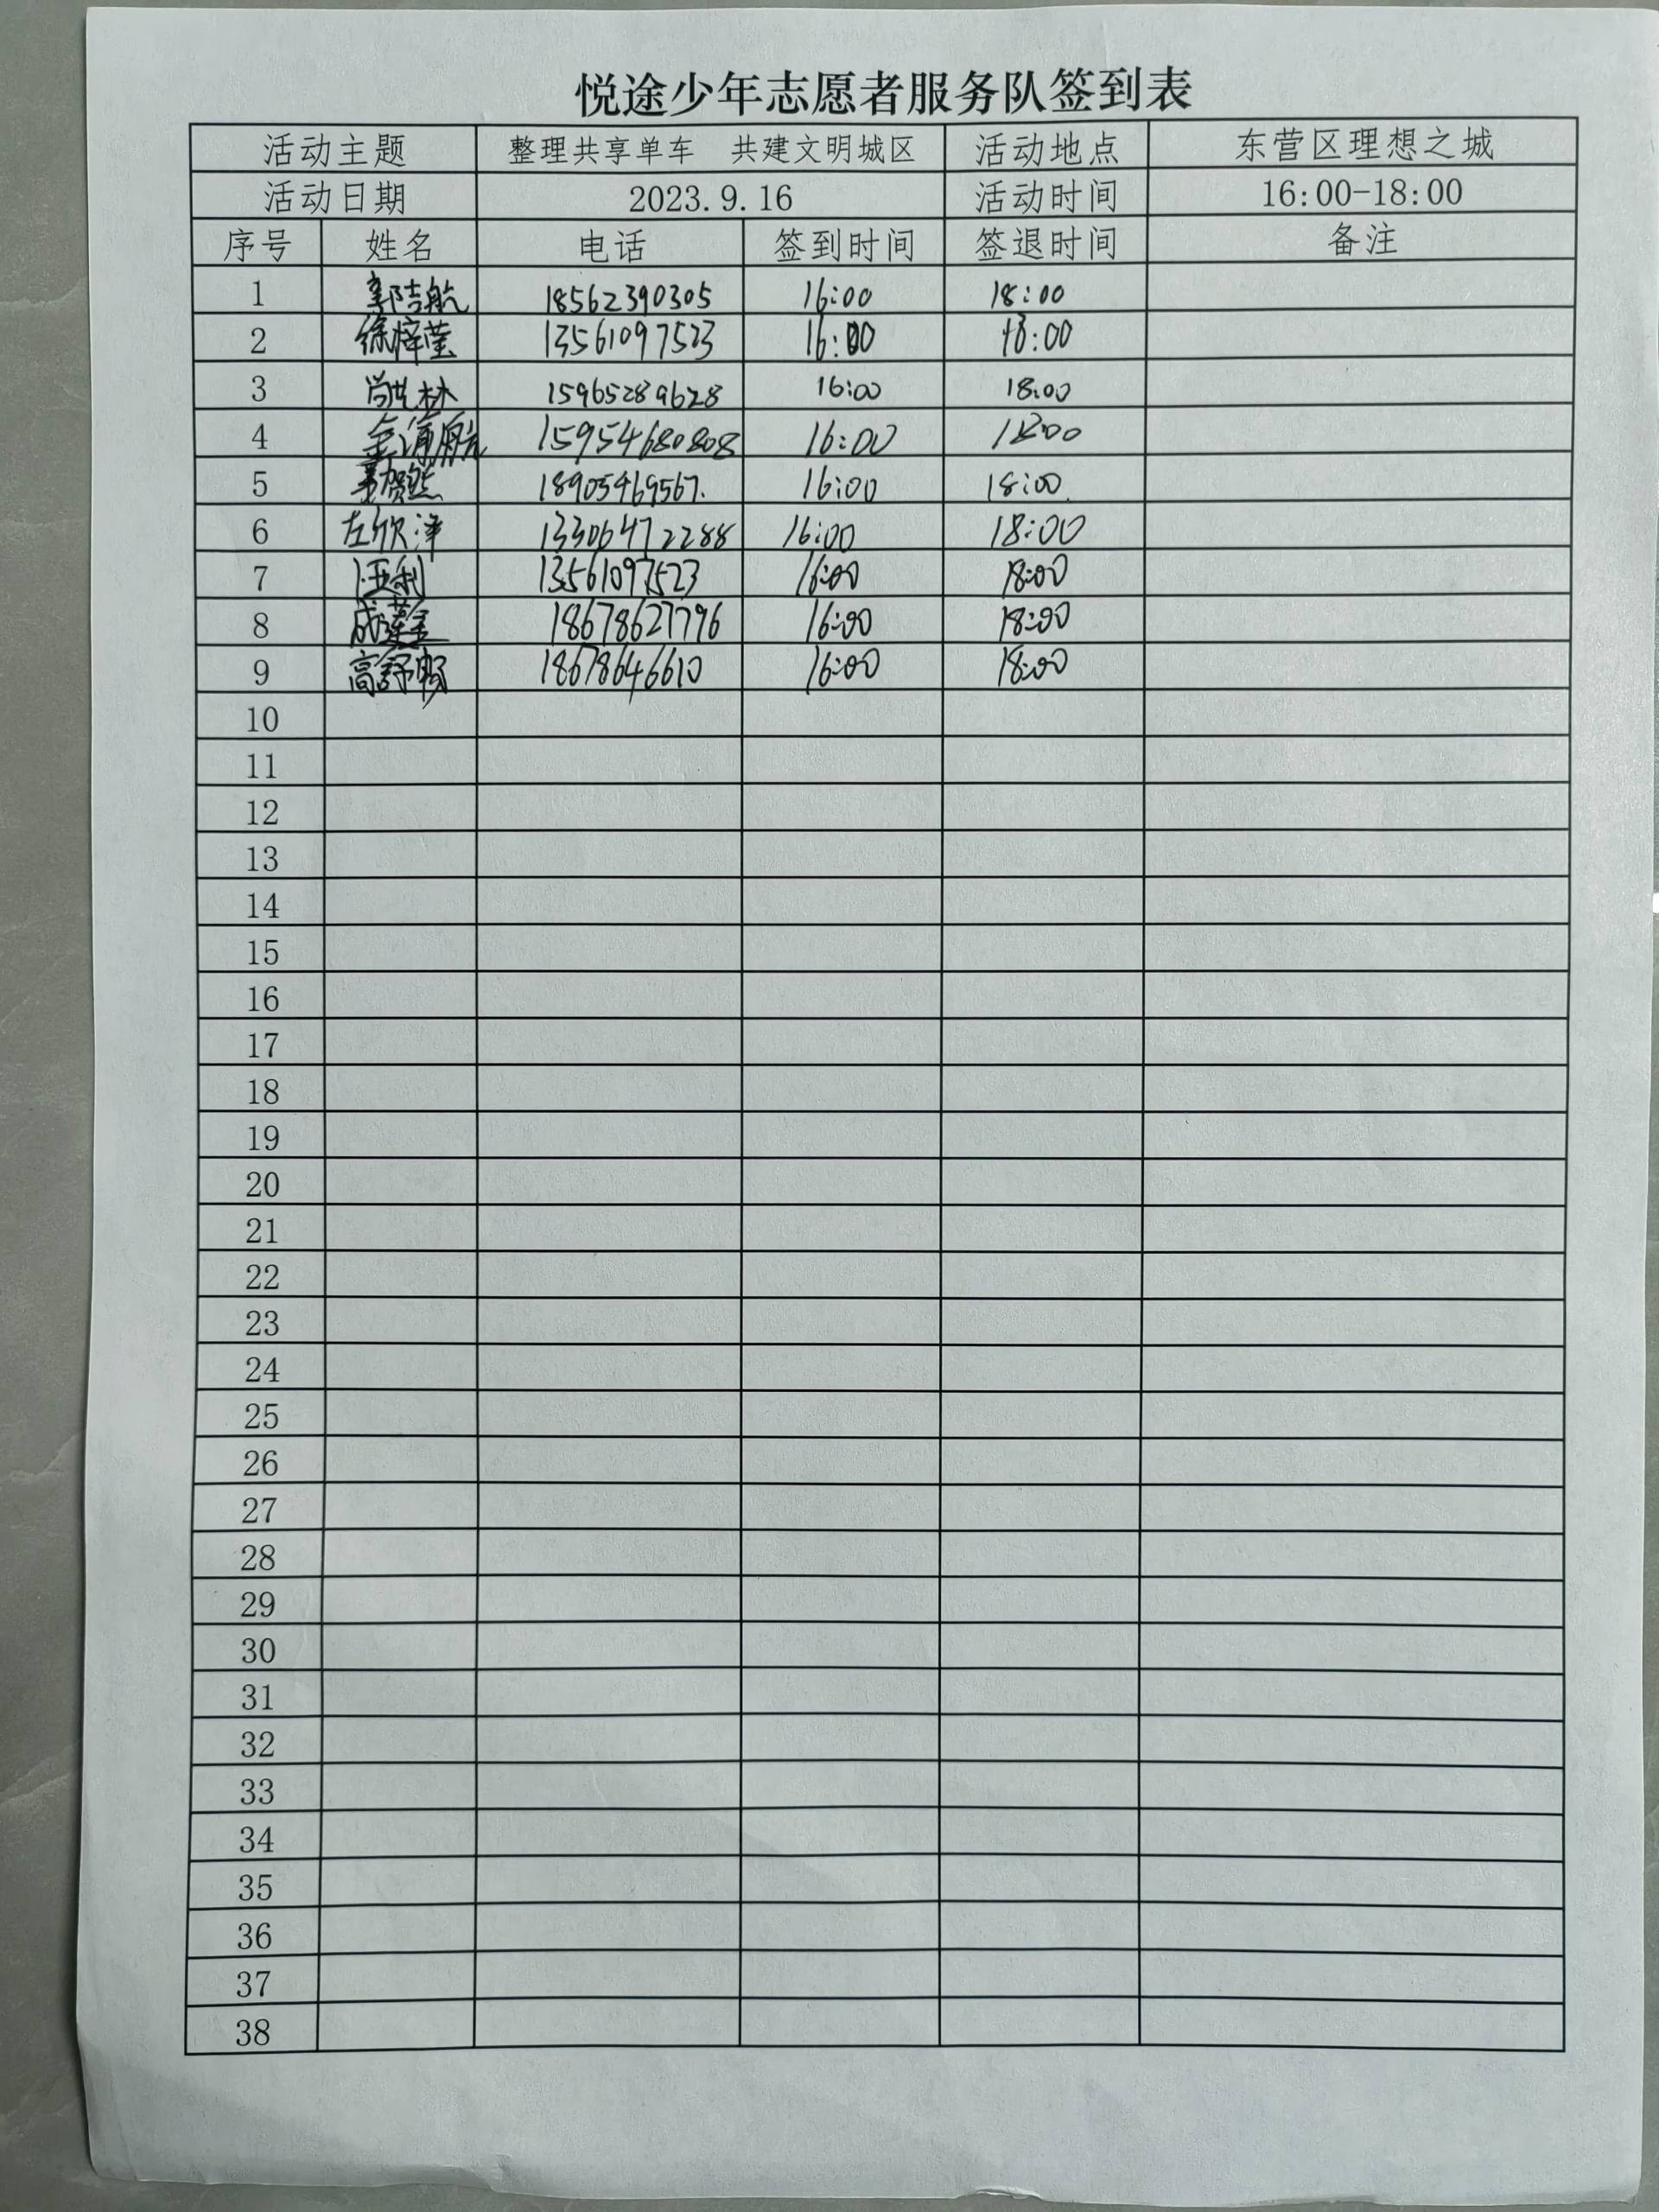 悦途少年志愿者服务队签到表
活动主题 整理共享单车 共建文明城区 活动地点 东营区理想之城
活动日期 2023.9.16 活动时间 16:00-18:00
序号 姓名 电话 签到时间 签退时间 备注
1 郭洁航 18562390305 16:00 18:00
2 徐梓莹 13561097523 16:00 18:00
3 15965289628 16:00 18:00
4 15954680808 16:00 18:00
5 18905469567. 16:00 18:00
6 左欣泽 13306472288 16:00 18:00
7 13561097523 16:00 18:00
8 18678627796 16:00 18:00
9 高舒畅 18678646610 16:00 18:00
10
11
12
13
14
15
16
17
18
19
20
21
22
23
24
25
26
27
28
29
30
31
32
33
34
35
36
37
38